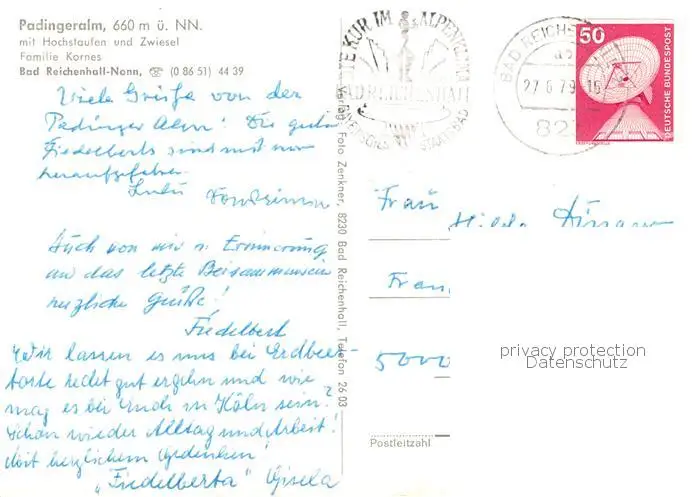 Padingeralm, 660 m ü. NN.
mit Hochstaufen und Zwiesel
Familie Kornes
Bad Reichenhall-Nonn, ☏ (0 86 51) 44 39
Viele Grüße von der
Padinger Alm! Die guten
Fiedelberts sind mit mir
heraufgefahren.
Auch von mir in Erinnerung
an das letzte Beisammensein
herzliche Grüße!
Fiedelbert
Wir lassen es uns bei Erdbeer-
torte recht gut ergehn und wie
mag es bei Euch in Köln sein?
Schon wieder Alltag und Arbeit!
Mit herzlichem Gedenken!
"Fiedelberta" Gisela
Verlag Foto Zenkner, 8230 Bad Reichenhall, Telefon 26 03
KUR IM ALPENKLIMA
BAD REICHENHALL
STAATSBAD
BAD REICHENHALL
27.6.79
50
DEUTSCHE BUNDESPOST
Frau
Hilde
5000
privacy protection
Datenschutz
Postleitzahl